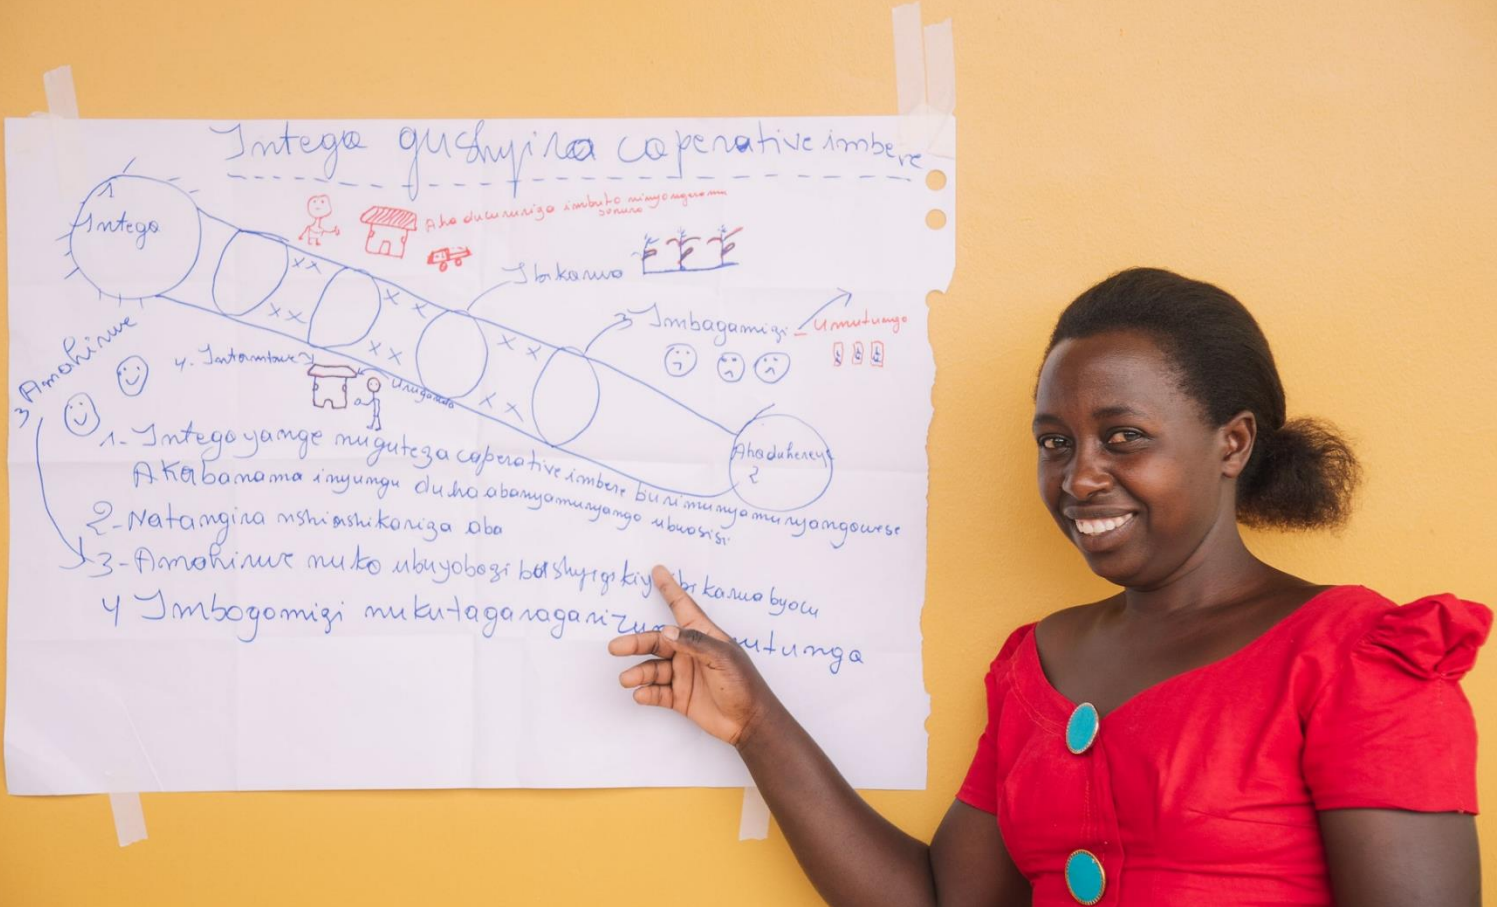 Intego gushyira coperative imbere
1
Intego
Aho ducururiza imbuto ninyongeramu
Ibikorwa
3 Imbagamizi - Umutungo
3 Amahirwe
4. Intambwe
Ahaduhereye
2
1- Intego yange nuguteza coperative imbere burimunyamuryangowese
Akabanama inyungu duha abanyamuryango ubwasisi
2- Natangira nshinshikariza aba
3- Amahirwe nuko ubuyobozi
ibikorwa byacu
4 Imbogamizi nukutagaragariz
utunga